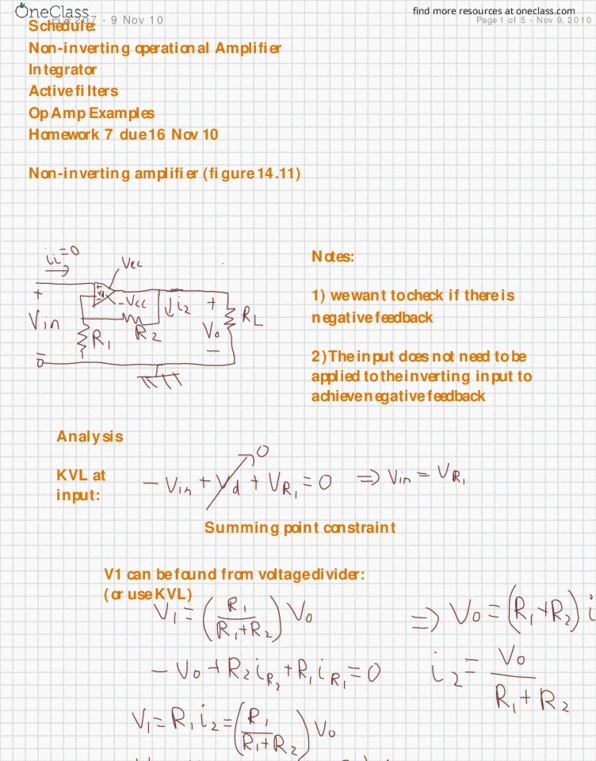 OneClass
find more resources at oneclass.com
- 9 Nov 10
Page 1 of 5 - Nov 9, 2010
Schedule:
Non-inverting operational Amplifier
Integrator
Active filters
Op Amp Examples
Homework 7 due 16 Nov 10
Non-inverting amplifier (figure 14.11)
ii=0
Vcc
+
-Vcc
i2
+
RL
Vin
R1
R2
Vo
-
-
Notes:
1) we want to check if there is
negative feedback
2) The input does not need to be
applied to the inverting input to
achieve negative feedback
Analysis
KVL at
input:
- Vin + Vd + VR1 = 0 ⇒ Vin = VR1
0
Summing point constraint
V1 can be found from voltage divider:
(or use KVL)
V1 = (R1/(R1+R2)) Vo ⇒ Vo = (R1+R2) i
- Vo + R2 iR2 + R1 iR1 = 0
i2 = Vo/(R1+R2)
V1 = R1 i2 = (R1/(R1+R2)) Vo